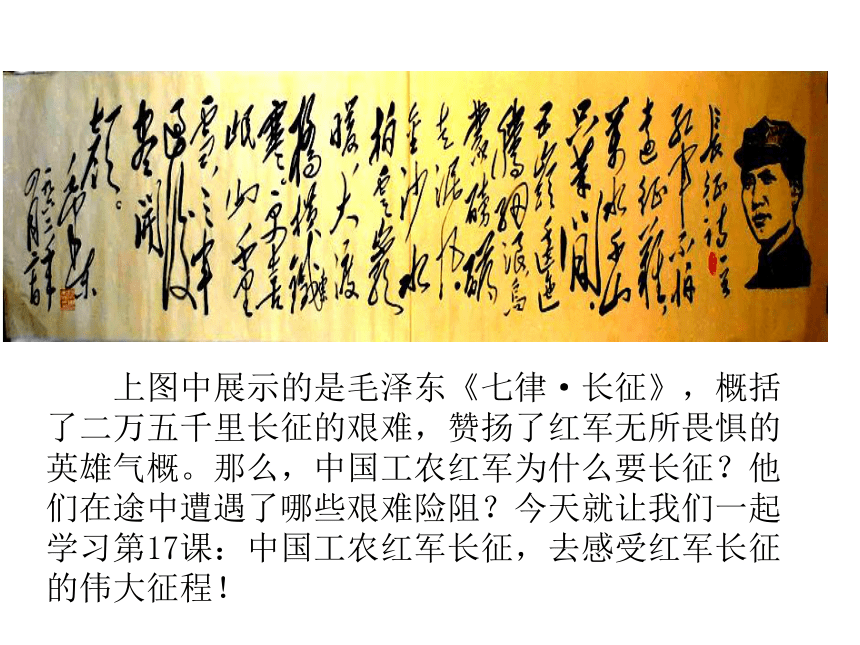 長征詩一首
红軍不怕
遠征難，
萬水千山
只等閒。
五嶺逶迤
騰細浪，烏
蒙磅礴
走泥丸。
金沙水
拍雲
暖，大渡
橋橫鐵索
寒。更喜
岷山千里
雪，三軍
過後
盡開
顏。
毛澤東
一九六二年
四月
上图中展示的是毛泽东《七律·长征》，概括
了二万五千里长征的艰难，赞扬了红军无所畏惧的
英雄气概。那么，中国工农红军为什么要长征？他
们在途中遭遇了哪些艰难险阻？今天就让我们一起
学习第17课：中国工农红军长征，去感受红军长征
的伟大征程！